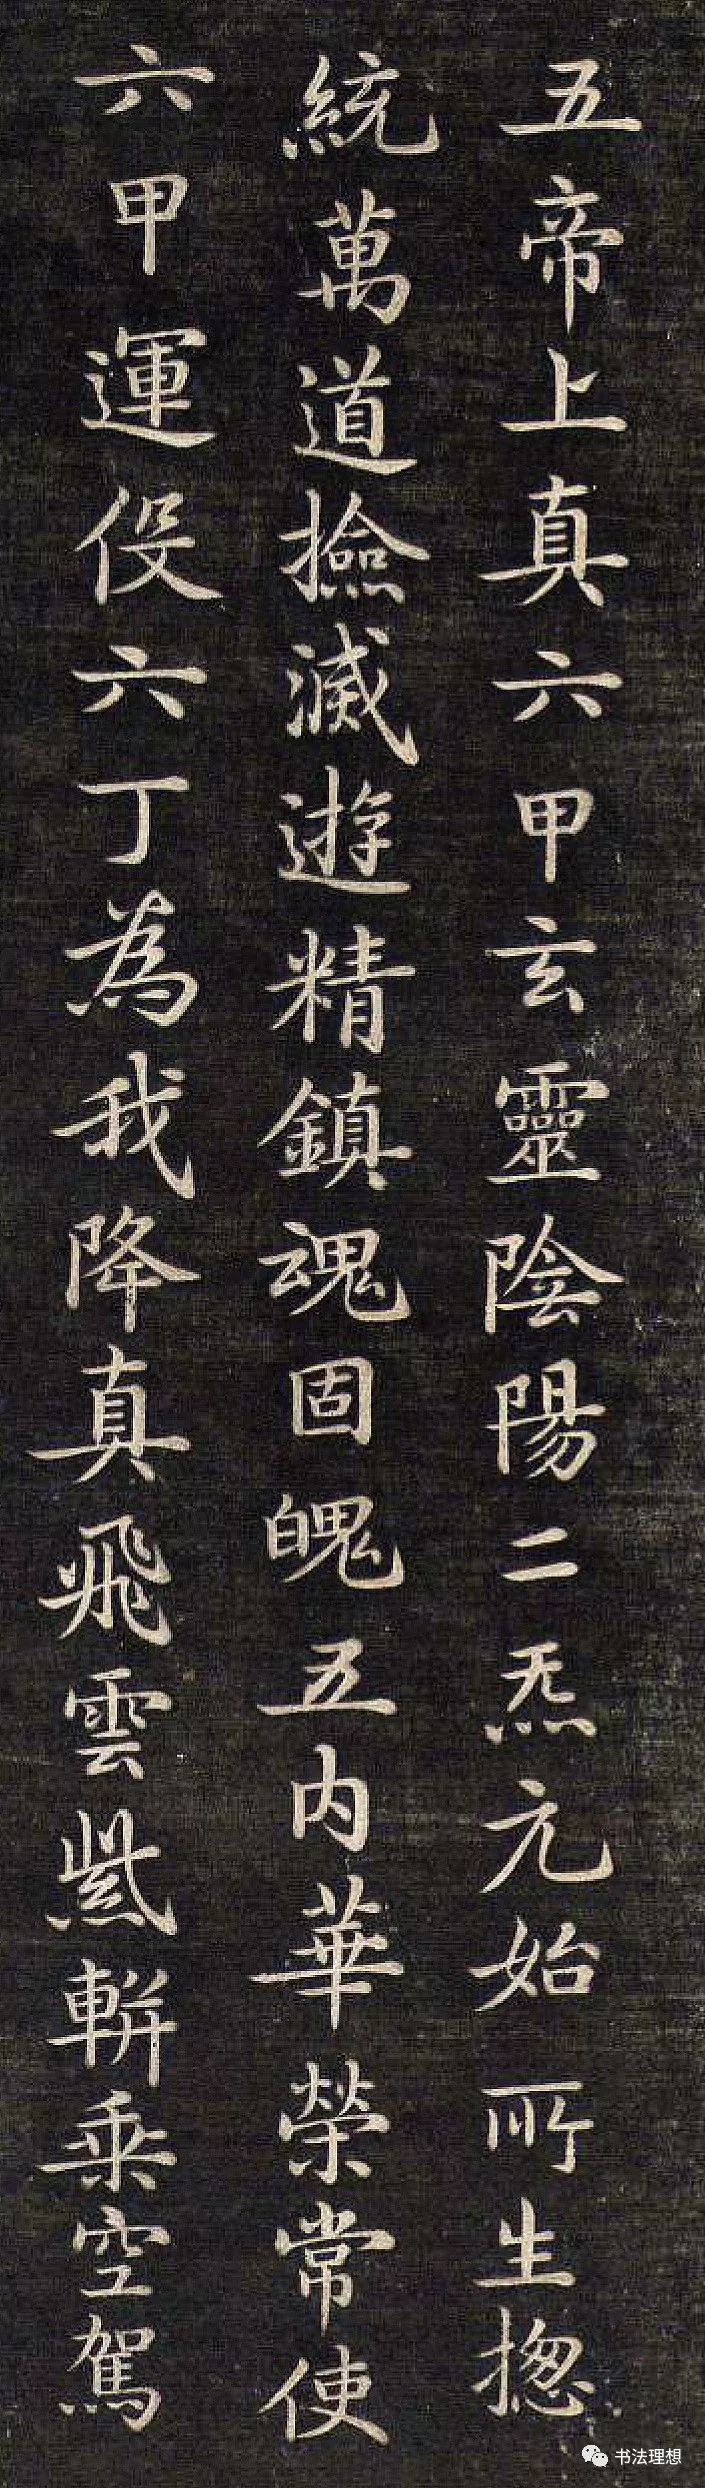 五帝上真六甲玄靈陰陽二炁元始所生揔
統萬道撿滅遊精鎮魂固魄五内華榮常使
六甲運伇六丁為我降真飛雲紫軿乗空駕
书法理想